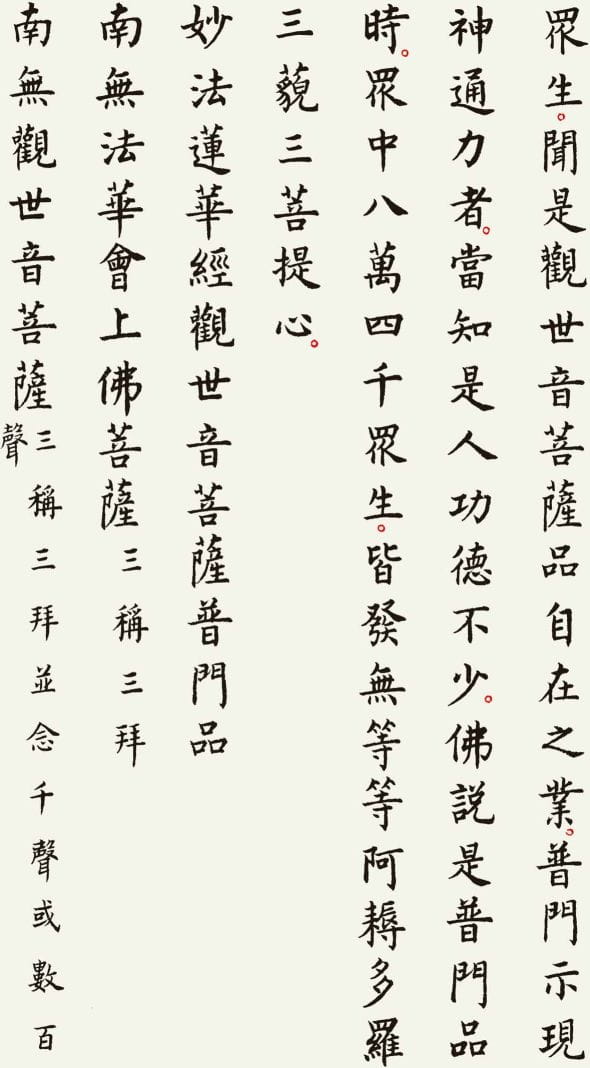 眾生。聞是觀世音菩薩品自在之業。普門示現
神通力者。當知是人功德不少。佛説是普門品
時。眾中八萬四千眾生。皆發無等等阿耨多羅
三藐三菩提心。
妙法蓮華經觀世音菩薩普門品
南無法華會上佛菩薩三稱三拜
南無觀世音菩薩三稱三拜並念千聲或數百
聲